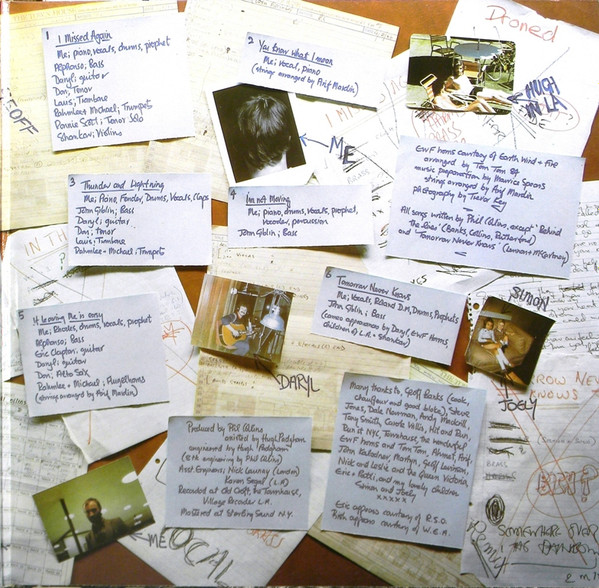 1 I Missed Again
Me; piano, vocals, drums, prophet
Alphonso; Bass
Daryl; guitar
Don; Tenor
Louis; Trombone
Rahmlee + Michael; Trumpets
Ronnie Scott; Tenor Solo
Shankar; Violins
2 You Know What I mean
Me; vocal, piano
(strings arranged by Arif Mardin)
Droned
HUGH
IN LA
ME
GEOFF
EWF horns courtesy of Earth Wind + Fire
arranged by Tom Tom 84
music preparation by Maurice Spears
strings arranged by Arif Mardin
photography by Trevor Key
All songs written by Phil Collins, except "Behind
the lines" (Banks, Collins, Rutherford)
and "Tomorrow Never Knows" (Lennon + McCartney)
3 Thunder and Lightning
Me; Piano, Fender, Drums, Vocals, Claps
John Giblin; Bass
Daryl; guitar
Don; tenor
Louis; Trombone
Rahmlee + Michael; Trumpets
4 I'm not Moving
Me; piano, drums, vocals, prophet,
vocoder, percussion
John Giblin; Bass
IN TH
5 If leaving Me is easy
Me; Rhodes, drums, vocals, prophet
Alphonso; Bass
Eric Clapton; guitar
Daryl; guitar
Don; Alto Sax
Rahmlee + Michael; Flugelhorns
(strings arranged by Arif Mardin)
6 Tomorrow Never Knows
Me; vocals, Roland D.M, Drums, Prophets
John Giblin; Bass
(cameo appearances by Daryl, EWF Horns
children of L.A. + Shankar)
SIMON
JOELY
DARYL
ROW NEVER
KNOWS
Produced by Phil Collins
assisted by Hugh Padgham
engineered by Hugh Padgham
(8 tk engineering by Phil Collins)
Asst Engineers; Nick Launay (London)
Karen Siegel (L.A)
Recorded at Old Croft, the Townhouse,
Village Recorder L.A.
Mastered at Sterling Sound N.Y.
Many thanks to, Geoff Banks (cook,
chauffeur and good bloke), Steve
Jones, Dale Newman, Andy Mackrill,
Tony Smith, Carole Willis, Hit and Run,
Run it NYC, Townhouse, the wonderful
EWF horns and Tom Tom, Ahmet, Arif,
John Kalodner, Martyn, Geoff Levinson,
Nick and Leslie and the Queen Victoria,
Eric + Patti, and my lovely children
Simon and Joely
x x x x x
Eric appears courtesy of R.S.O.
Both appear courtesy of W.E.A.
ME
OCAL
SOMEWHERE OVER